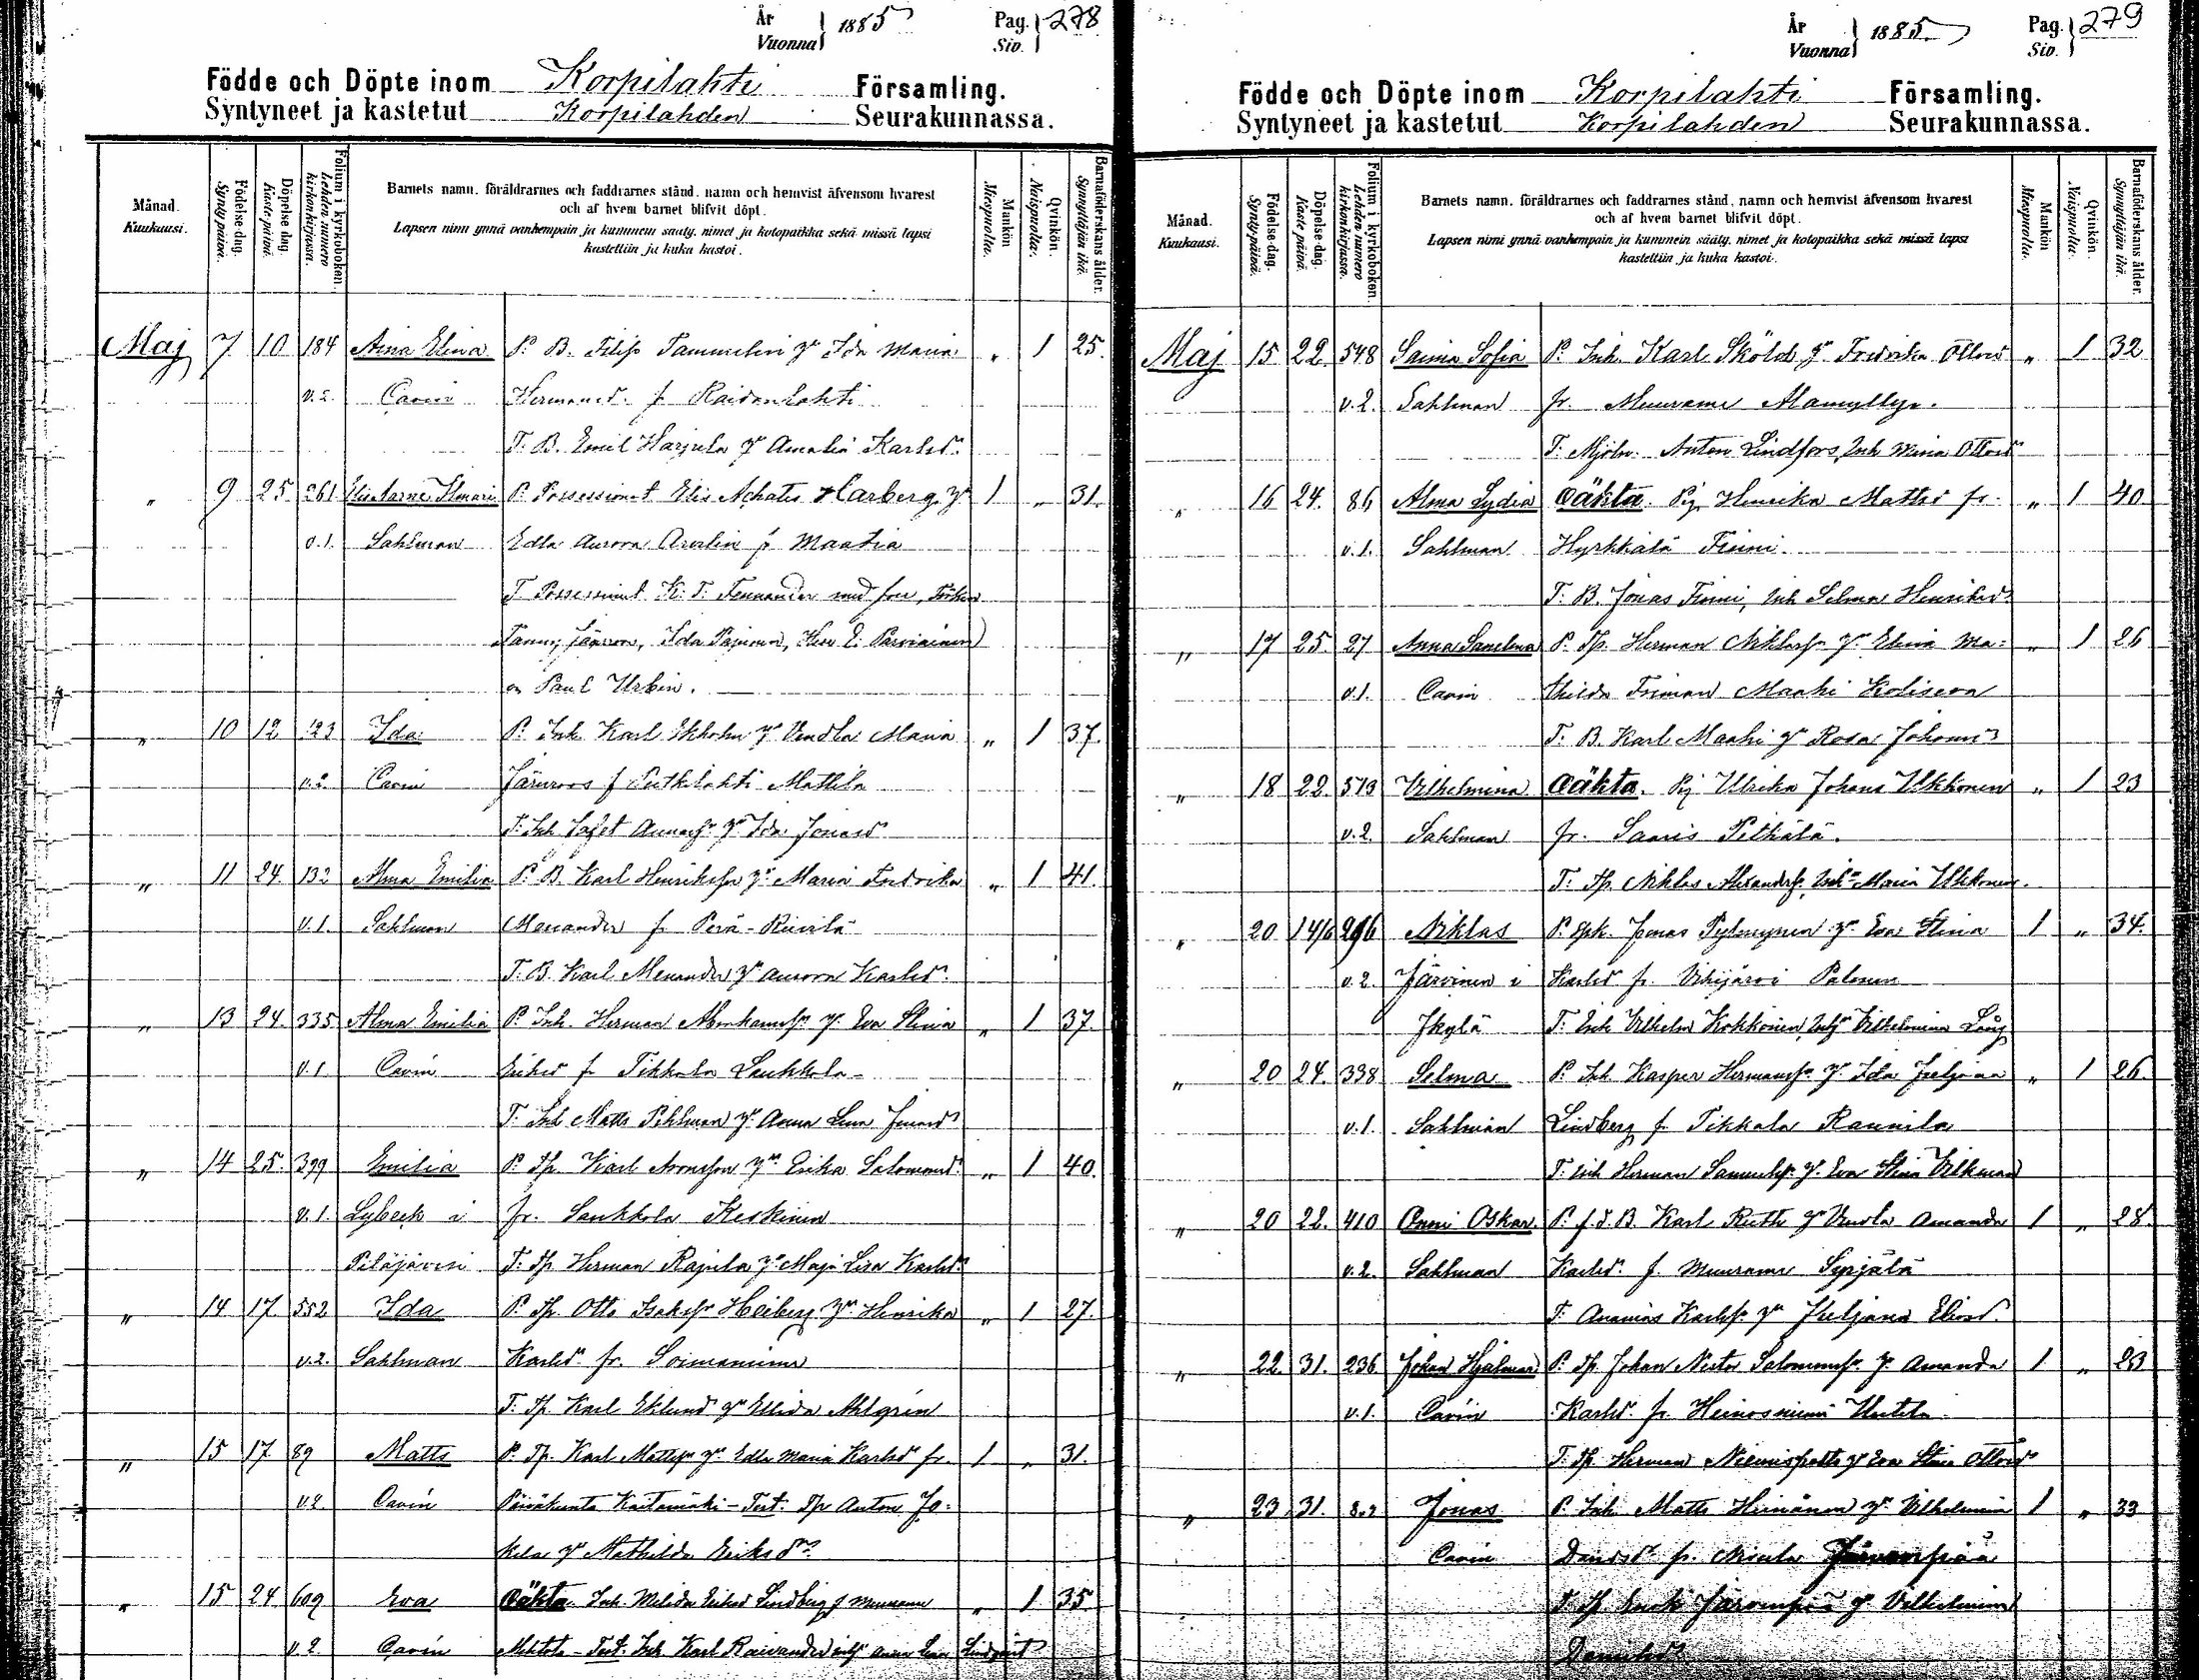 År Vuonna 1885 Pag. Siv. 278
Födde och Döpte inom Korpilahti Församling.
Syntyneet ja kastetut Korpilahden Seurakunnassa.
Månad. Kuukausi.
Födelse dag. Synty päivä.
Döpelse dag. Kaste päivä.
Folium i kyrkoboken. Lehden numero kirkonkirjassa.
Barnets namn, föräldrarnes och faddrarnes stånd, namn och hemvist äfvensom hvarest
och af hvem barnet blifvit döpt.
Lapsen nimi ynnä vanhempain ja kummein sääty, nimet ja kotopaikka sekä missä lapsi
kastettiin ja kuka kastoi.
Mankön Miespuolta.
Qvinkön. Naispuolta.
Barnaföderskans ålder. Synnyttäjän ikä.
Maj 7 10 184 Aina Elina P. B. Filip Tammelin Ida Maria „ 1 25.
v.2. Cavén Hermansd. f Raidanlahti
T. B. Emil Harjula Amalia Karlsd.
„ 9 25 261 Elis Aarne Ilmari P. Possessionat Elis Achates Carberg 1 „ 31.
v.1. Sahlman Edla Aurora f Maatia
T. Possessionat K. F. Fennander med fru,
Fanny Ida E. Parviainen
o. Paul Urbin.
„ 10 12 123 Ida P. Inh. Karl Ekholm Vendla Maria „ 1 37.
v.2. Cavén Järnroos f Putkilahti Mattila
T. Inh. Ida Jonasd.
„ 11 24 132 Alma Emilia P. B. Karl Henriksson Maria Fredrika „ 1 41.
v.1. Sahlman Menander f Perä-Ruivila
T. B. Karl Menander Aurora Karlsd.
„ 13 24. 335 Alma Emilia P. Inh. Herman Abrahamss. Eva Stina „ 1 37.
v.1 Cavén Eriksd f Tikkala Laukkola
T. Inh Matts Pihlman Anna Lena
„ 14 25. 399 Emilia P. Tp. Karl Aronsson Erika Salomonsd. „ 1 40.
v.1. Lybeck i fr. Saukkola Keskinen
Petäjävesi T. Tp Herman Rajula Maja Lisa Karlsd.
„ 14 17 552 Ida P. Tp. Otto Isakss. Heiberg Henrika „ 1 27.
v.2. Sahlman Karlsd. fr.
T. Tp. Karl Eklund Elida Ahlgren
„ 15 17 89 Matts P. Tp. Karl Mattss. Edla Maria Karlsd fr. 1 „ 31.
v.2. Cavén Päiväkunta - Test. Tp Anton Jo-
kela Mathilda Eriksd.
„ 15 24 609 Eva Oäkta. Inh. Melida Eriksd Lindberg f Muurame „ 1 35
v.2 Cavén Mattila - Test. Inh Karl Lena Lindqvist
År Vuonna 1885 Pag. Siv. 279
Födde och Döpte inom Korpilahti Församling.
Syntyneet ja kastetut Korpilahden Seurakunnassa.
Månad. Kuukausi.
Födelse-dag. Synty-päivä.
Döpelse-dag. Kaste päivä.
Folium i kyrkoboken. Lehden numero kirkonkirjassa.
Barnets namn, föräldrarnes och faddrarnes stånd, namn och hemvist äfvensom hvarest
och af hvem barnet blifvit döpt.
Lapsen nimi ynnä vanhempain ja kummein sääty, nimet ja kotopaikka sekä missä lapsi
kastettiin ja kuka kastoi.
Mankön Miespuolta.
Qvinkön. Naispuolta.
Barnaföderskans ålder. Synnyttäjän ikä.
Maj 15 22. 548 Saima Sofia P. Inh. Karl Sköld Fredrika Ottosd „ 1 32
v.2. Sahlman fr. Muurame Alamylly.
T. Mjöln. Anton Lindfors, Inh Mina Ottosd
„ 16 24. 86 Alma Lydia Oäkta. Pig. Henrika Mattsd fr. „ 1 40
v.1. Sahlman Hyrkkälä Finni.
T. B. Jonas Finni, Inh Selma Henriksd.
„ 17 25. 27 Anna Sanelma P. Tp. Herman Niklass. Elina Ma- „ 1 26
v.1. Cavén thilda Friman Maahi
T. B. Karl Maahi Rosa Johansd
„ 18 22. 573 Vilhelmina Oäkta. Pig Ulrika Johana Ukkonen „ 1 23
v.2. Sahlman fr. Saaris Pitkälä.
T. Tp. Niklas Alexanderss. Inh Maria Ukkonen.
„ 20 14/6 296 Niklas P. Jonas Eva Stina 1 „ 34.
v.2. Järvinen i Karlsd fr. Vihijärvi Palonen
Jkylä T. Inh Vilhelm Kokkonen, Vilhelmina Lång
„ 20 24. 338 Selma P. Inh Kasper Hermanss. Ida Juljana „ 1 26.
v.1. Sahlman Lindberg f Tikkala Raunila
T. Inh Herman Samuelss. Eva Stina Vilkman
„ 20 22. 410 Onni Oskar P. f.d. B. Karl Ruth Vendla Amanda 1 „ 28.
v.2. Sahlman Karlsd. f. Muurame Syrjälä
T. Ananias Karlss. Juljana Eliasd.
„ 22. 31. 236 Johan Hjalmar P. Tp. Johan Nestor Salomonss. Amanda 1 „ 23
v.1. Cavén Karlsd. fr. Heinosniemi Uutela
T. Tp Herman Eva Stina Ottosd
„ 23. 31. Jonas P. Inh. Matts Heinänen Vilhelmina 1 „ 33
Cavén Davidsd fr. Järvenpää
T. Tp Järvenpää Vilhelmina
Danielsd